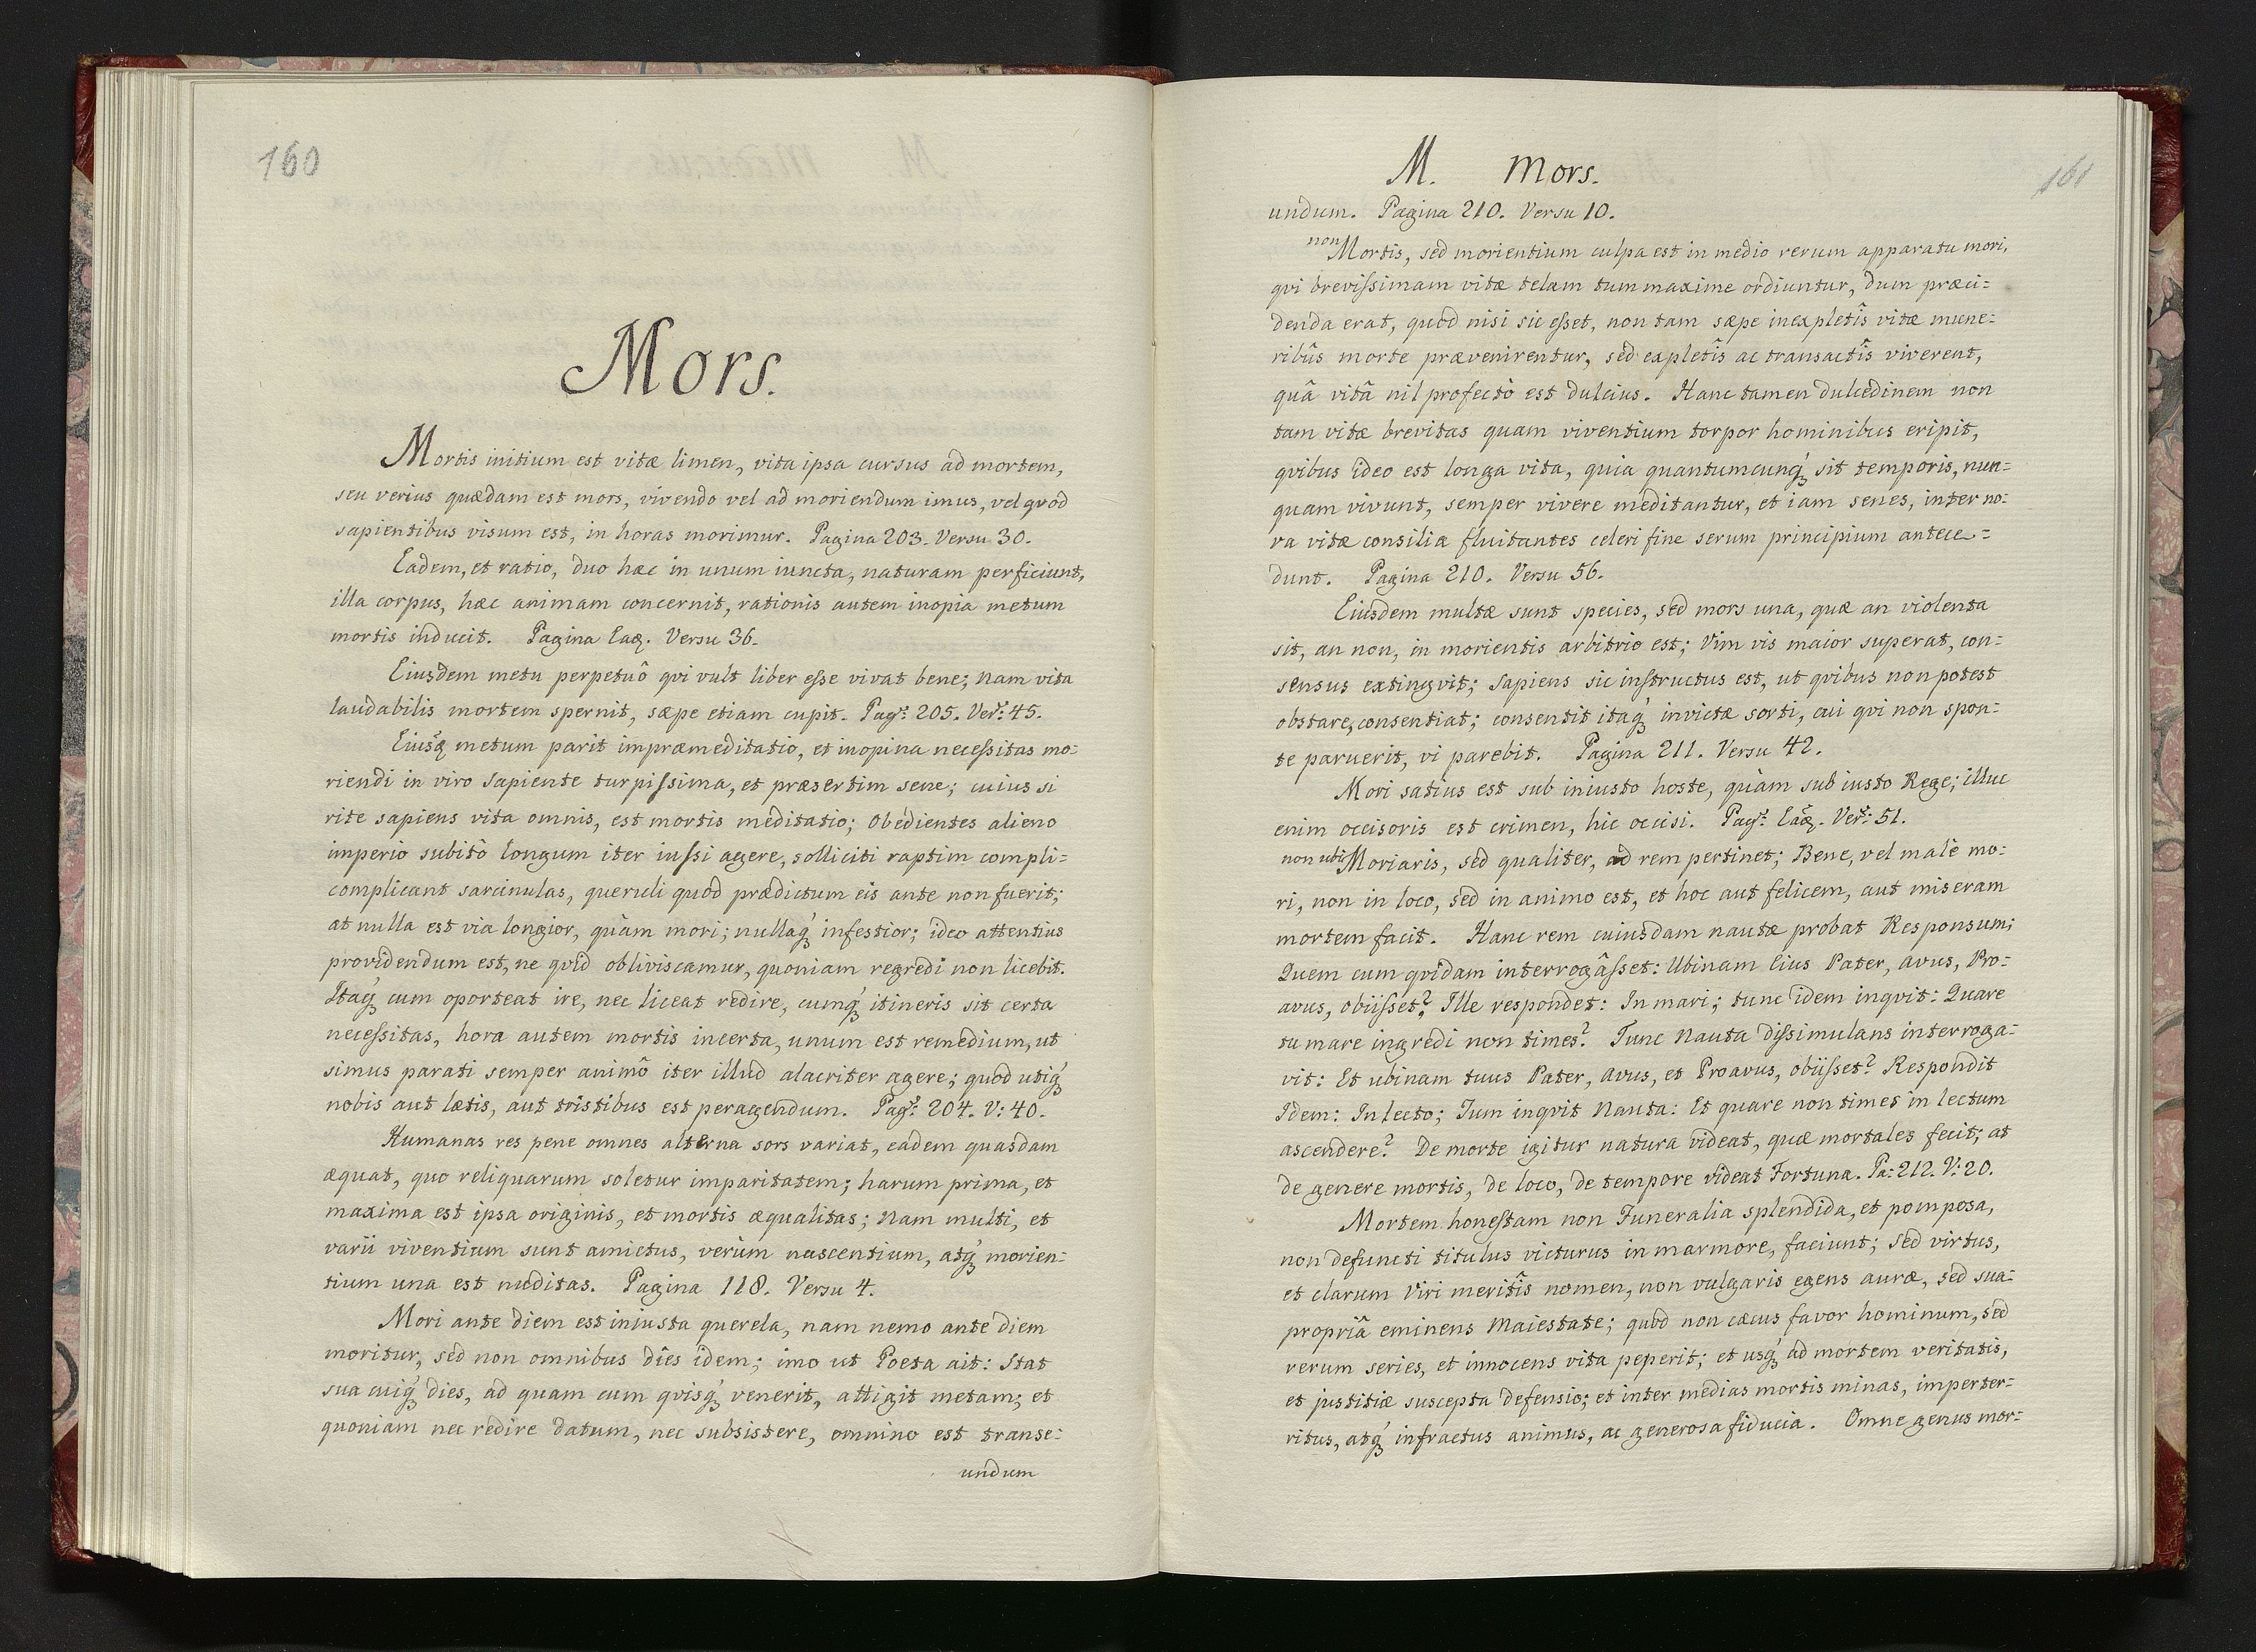 160
Mors.
Mortis initium est vitæ limen, vita ipsa cursus ad mortem,
seu verius quædam est mors, vivendo vel ad moriendum imus, vel qvod
sapientibus visum est, in horas morimur. Pagina 203. Versu 30.
Eadem, et ratio, duo hæc in unum iuncta, naturam perficiunt,
illa corpus, hæc animam concernit, rationis autem inopia metum
mortis inducit. Pagina Eaꝫ. Versu 36.
Eiusdem metu perpetuô qvi vult liber esse vivat bene; Nam vita
laudabilis mortem spernit, sæpe etiam cupit. Pagª: 205. Verˢ: 45.
Eiusꝗ metum parit impræmeditatio, et inopina necessitas mo=
riendi in viro sapiente turpissima, et præsertim sene; cuius si
rite sapiens vita omnis, est mortis meditatio; Obedientes alieno
imperio subitò longum iter iussi agere, solliciti raptim compli=
complicant sarcinulas, queruli quod prædictum eis ante non fuerit;
at nulla est via longior, quàm mori; nullaq́ꝫ infestior; ideo attentius
providendum est, ne qvid obliviscamur, quoniam regredi non licebit.
Itaq́ꝫ cum oporteat ire, nec liceat redire, cumq́ꝫ itineris sit certa
necessitas, hora autem mortis incerta, unum est remedium, ut
simus parati semper animô iter illud alacriter agere; quod utiq́ꝫ
nobis aut lætis, aut tristibus est peragendum. Pagª: 204. V: 40.
Humanas res pene omnes alterna sors variat, eadem quasdam
æquat, quo reliquarum soletur imparitatem; harum prima, et
maxima est ipsa originis, et mortis æqualitas; Nam multi, et
varii viventium sunt amictus, verùm nascentium, atq́ꝫ morien=
tium una est nuditas. Pagina 118. Versu 4.
Mori ante diem est iniusta querela, nam nemo ante diem
moritur, sed non omnibus dies idem; imo ut Poeta ait: Stat
sua cuiq́ꝫ dies, ad quam cum qvisq́ꝫ venerit, attigit metam; et
quoniam nec redire datum, nec subsistere, omnino est transe=
undum
M. Mors.
161
undum. Pagina 210. Versu 10.
non Mortis, sed morientium culpa est in medio rerum apparatu mori,
qvi brevissimam vitæ telam tum maxime ordiuntur, dum præci=
denda erat, quod nisi sic esset, non tam sæpe inexpletîs vitæ mune=
ribûs morte prævenirentur, sed expletîs ac transactîs viverent,
quâ vitâ nil profectò est dulcius. Hanc tamen dulcedinem non
tam vitæ brevitas quam viventium torpor hominibus eripit,
qvibus ideo est longa vita, quia quantumcunq́ꝫ sit temporis, nun=
quam vivunt, semper vivere meditantur, et iam senes, inter no=
va vitæ consilia fluitantes celeri fine serum principium antece=
dunt. Pagina 210. Versu 56.
Eiusdem multæ sunt species, sed mors una, quæ an violenta
sit, an non, in morientis arbitrio est; Vim vis maior superat, con=
sensus extingvit; sapiens sic instructus est, ut qvibus non potest
obstare, consentiat; consentit itaq́ꝫ invictæ sorti, cui qvi non spon=
te paruerit, vi parebit. Pagina 211. Versu 42.
Mori satius est sub iniusto hoste, quàm sub iusto Rege; illuc
enim occisoris est crimen, hic occisi. Pagª: Eaꝫ. Verˢ: 51.
non ubi Moriaris, sed qualiter, ad rem pertinet; Bene, vel malè mo=
ri, non in loco, sed in animo est, et hoc aut felicem, aut miseram
mortem facit. Hanc rem cuiusdam nautæ probat Responsum;
Quem cum qvidam interrogâsset: Ubinam Eius Pater, Avus, Pro=
avus, obiisset? Ille respondet: In mari; tunc idem inqvit: Quare
tu mare ingredi non times? Tunc Nauta dissimulans interroga=
vit: Et ubinam tuus Pater, Avus, et Proavus, obiisset? Respondit
Idem: In lecto; Tum inqvit Nauta: Et quare non times in lectum
ascendere? De morte igitur natura videat, quæ mortales fecit; at
de genere mortis, de loco, de tempore videat Fortuna. Pa: 212. V: 20.
Mortem honestam non Funeralia splendida, et pomposa,
non defuncti titulus victurus in marmore, faciunt; sed virtus,
et clarum Viri meritîs nomen, non vulgaris egens auræ, sed sua=
propriâ eminens Maiestate; quod non cæcus favor hominum, sed
rerum series, et innocens vita peperit; et usq́ꝫ ad mortem veritatis,
et justitiæ suscepta defensio; et inter medias mortis minas, imperter=
ritus, atq́ꝫ infractus animus, ac generosa fiducia. Omne genus mor=